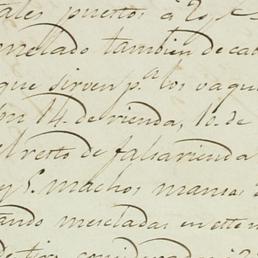 ales puestos á 2
melado tambien de cab
que sirven p.ª los vaque
on 14. de rienda, 10. de
el resto de falsa rienda
y 5. machos mansos
ando mescladas en este